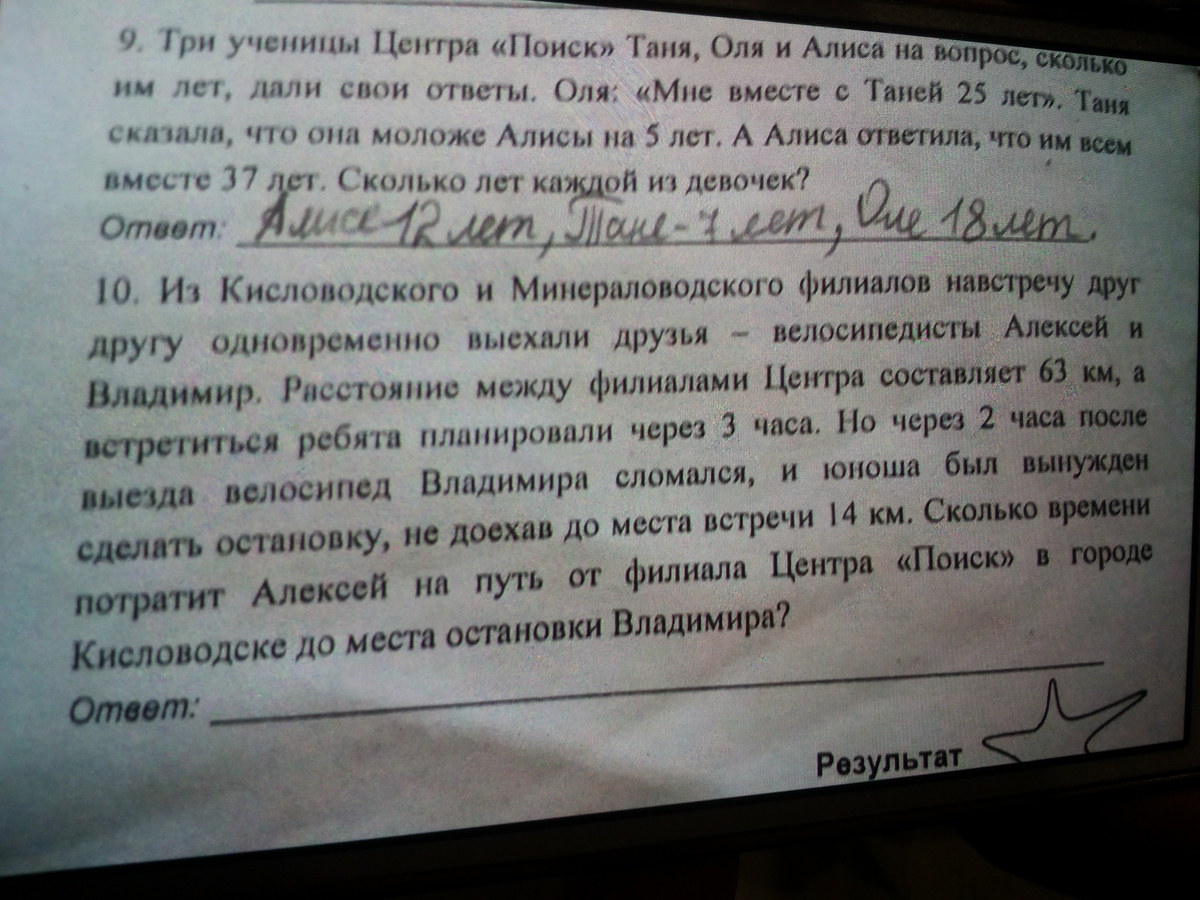 9. Три ученицы Центра «Поиск» Таня, Оля и Алиса на вопрос, сколько
им лет, дали свои ответы. Оля: «Мне вместе с Таней 25 лет». Таня
сказала, что она моложе Алисы на 5 лет. А Алиса ответила, что им всем
вместе 37 лет. Сколько лет каждой из девочек?
Ответ: Алисе 12 лет, Тане - 7 лет, Оле 18 лет.
10. Из Кисловодского и Минераловодского филиалов навстречу друг
другу одновременно выехали друзья – велосипедисты Алексей и
Владимир. Расстояние между филиалами Центра составляет 63 км, а
встретиться ребята планировали через 3 часа. Но через 2 часа после
выезда велосипед Владимира сломался, и юноша был вынужден
сделать остановку, не доехав до места встречи 14 км. Сколько времени
потратит Алексей на путь от филиала Центра «Поиск» в городе
Кисловодске до места остановки Владимира?
Ответ:
Результат